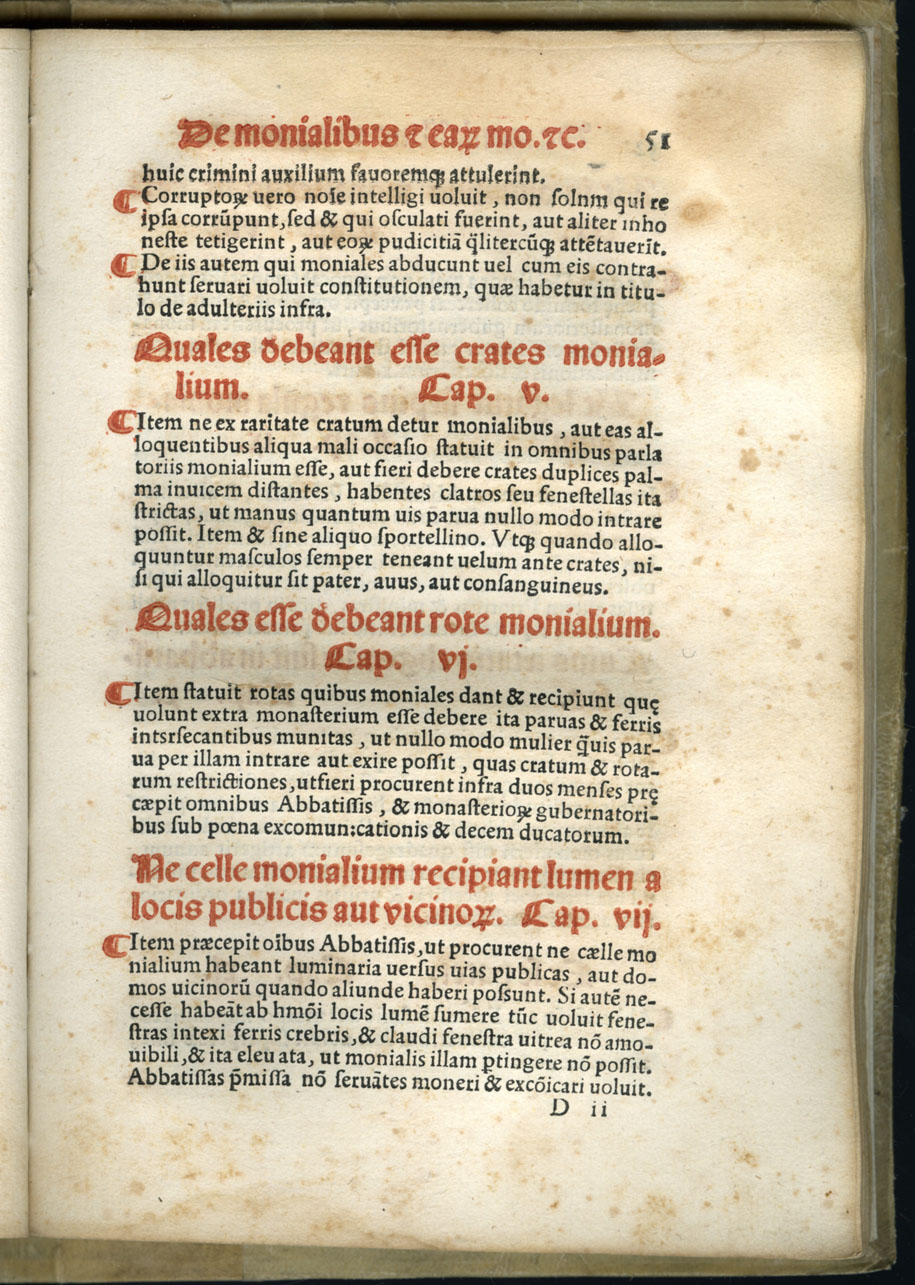 De monialibus ⁊ eaꝝ mo.⁊c. 51
huic crimini auxilium fauoremqꝫ attulerint.
¶ Corruptoꝝ uero noĩe intelligi uoluit, non solnm qui re
ipsa corrũpunt, sed & qui osculati fuerint, aut aliter inho
neste tetigerint, aut eoꝝ pudicitiã q̃litercũqꝫ attẽtauerĩt.
¶ De iis autem qui moniales abducunt uel cum eis contra-
hunt seruari uoluit constitutionem, quæ habetur in titu-
lo de adulteriis infra.
Quales debeant esse crates monia-
lium. Cap. v.
¶ Item ne ex raritate cratum detur monialibus, aut eas al-
loquentibus aliqua mali occasio statuit in omnibus parla
toriis monialium esse, aut fieri debere crates duplices pal-
ma inuicem distantes, habentes clatros seu fenestellas ita
strictas, ut manus quantum uis parua nullo modo intrare
possit. Item & sine aliquo sportellino. Vtqꝫ quando allo-
quuntur masculos semper teneant uelum ante crates, ni-
si qui alloquitur sit pater, auus, aut consanguineus.
Quales esse debeant rote monialium.
Cap. vj.
¶ Item statuit rotas quibus moniales dant & recipiunt quę
uolunt extra monasterium esse debere ita paruas & ferris
intsrsecantibus munitas, ut nullo modo mulier q̃uis par-
ua per illam intrare aut exire possit, quas cratum & rota-
rum restrictiones, utfieri procurent infra duos menses prę
cæpit omnibus Abbatissis, & monasterioꝝ gubernatori-
bus sub pœna excomun:cationis & decem ducatorum.
Ne celle monialium recipiant lumen a
locis publicis aut vicinoꝝ. Cap. vij.
¶ Item præcepit oĩbus Abbatissis, ut procurent ne cælle mo
nialium habeant luminaria uersus uias publicas, aut do-
mos uicinorũ quando aliunde haberi possunt. Si autẽ ne-
cesse habeãt ab hmõi locis lumẽ sumere tũc uoluit fene-
stras intexi ferris crebris, & claudi fenestra uitrea nõ amo-
uibili, & ita eleu ata, ut monialis illam ꝑtingere nõ possit.
Abbatissas p̃missa nõ seruãtes moneri & excõicari uoluit.
D ii